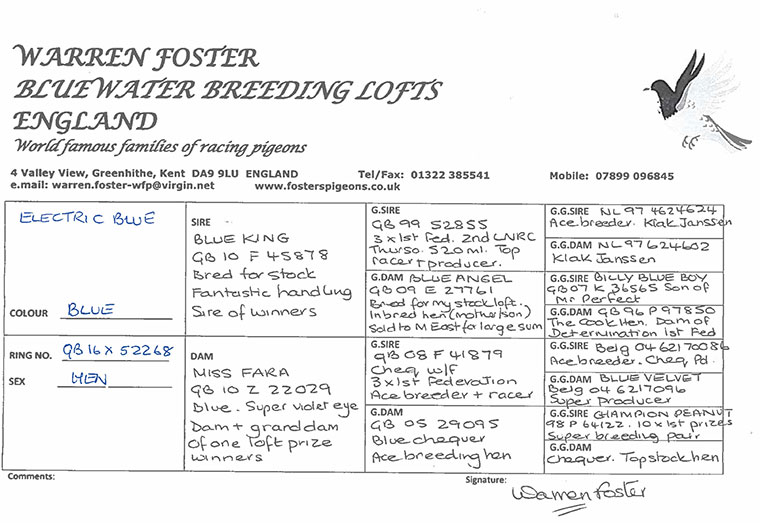 WARREN FOSTER
BLUEWATER BREEDING LOFTS
ENGLAND
World famous families of racing pigeons
4 Valley View, Greenhithe, Kent DA9 9LU ENGLAND Tel/Fax: 01322 385541 Mobile: 07899 096845
e.mail: warren.foster-wfp@virgin.net www.fosterspigeons.co.uk
ELECTRIC BLUE
COLOUR BLUE
RING NO. GB 16 X 52268
SEX HEN
SIRE
BLUE KING
GB 10 F 45878
Bred for stock
Fantastic handling
Sire of winners
DAM
MISS FARA
GB 10 Z 22029
Blue. Super violet eye
Dam + granddam
of one loft prize
winners
G.SIRE
GB 99 S2855
3 x 1st Fed. 2nd LNRC
Thurso. 520 ml. Top
racer + producer.
G.DAM BLUE ANGEL
GB 09 E 27761
Bred for my stock loft.
Inbred hen (mother/son)
Sold to M East for large sum
G.SIRE
GB 08 F 41879
Cheq w/f
3 x 1st Federation
Ace breeder + racer
G.DAM
GB 05 29095
Blue chequer
Ace breeding hen
G.G.SIRE NL 97 4624624
Ace breeder. Klak Janssen
G.G.DAM NL 97 624602
Klak Janssen
G.G.SIRE BILLY BLUE BOY
GB 07 K 36565 Son of
Mr Perfect
G.G.DAM GB 96 P 97850
The Cook Hen. Dam of
Determination 1st Fed
G.G.SIRE Belg 04 6217008
Ace breeder. Cheq Pd.
G.G.DAM BLUE VELVET
Belg 04 6217096
Super Producer
G.G.SIRE CHAMPION PEANUT
98 P 64122. 10 x 1st prizes
Super breeding pair
G.G.DAM
Chequer. Top stock hen
Comments:
Signature:
Warren Foster